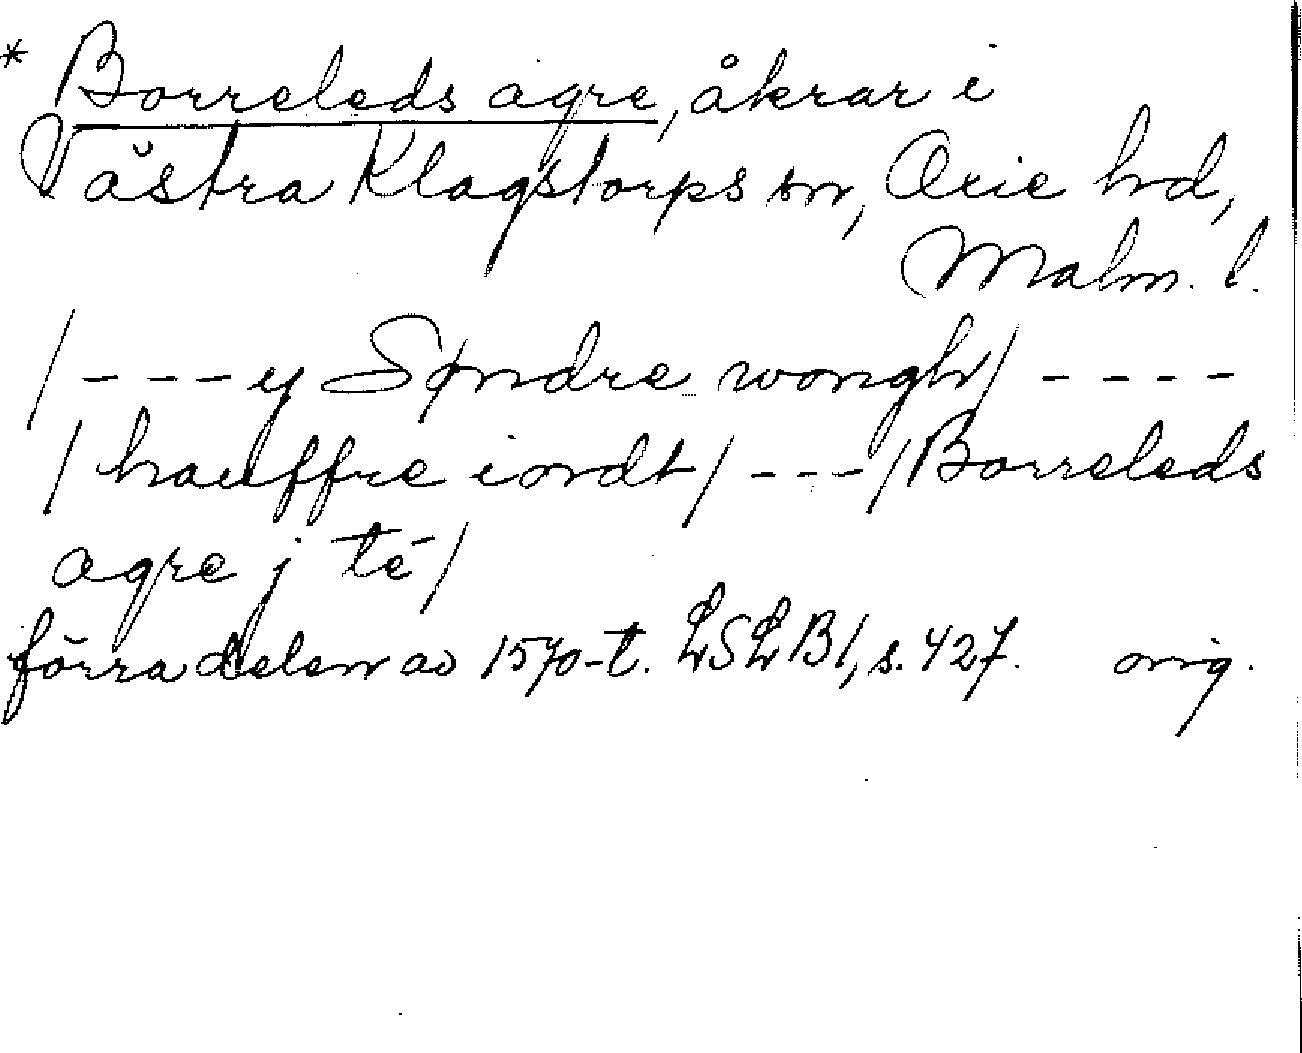 * Borreleds agre, åkrar i
Västra Klagstorps sn, Oxie hd,
Malm. l.
/ - - - y Søndre wongh / - - - -
/ hauffre iordt / - - - / Borreleds
agre j té /
förra delen av 1570-t. LSLB1, s. 427. orig.